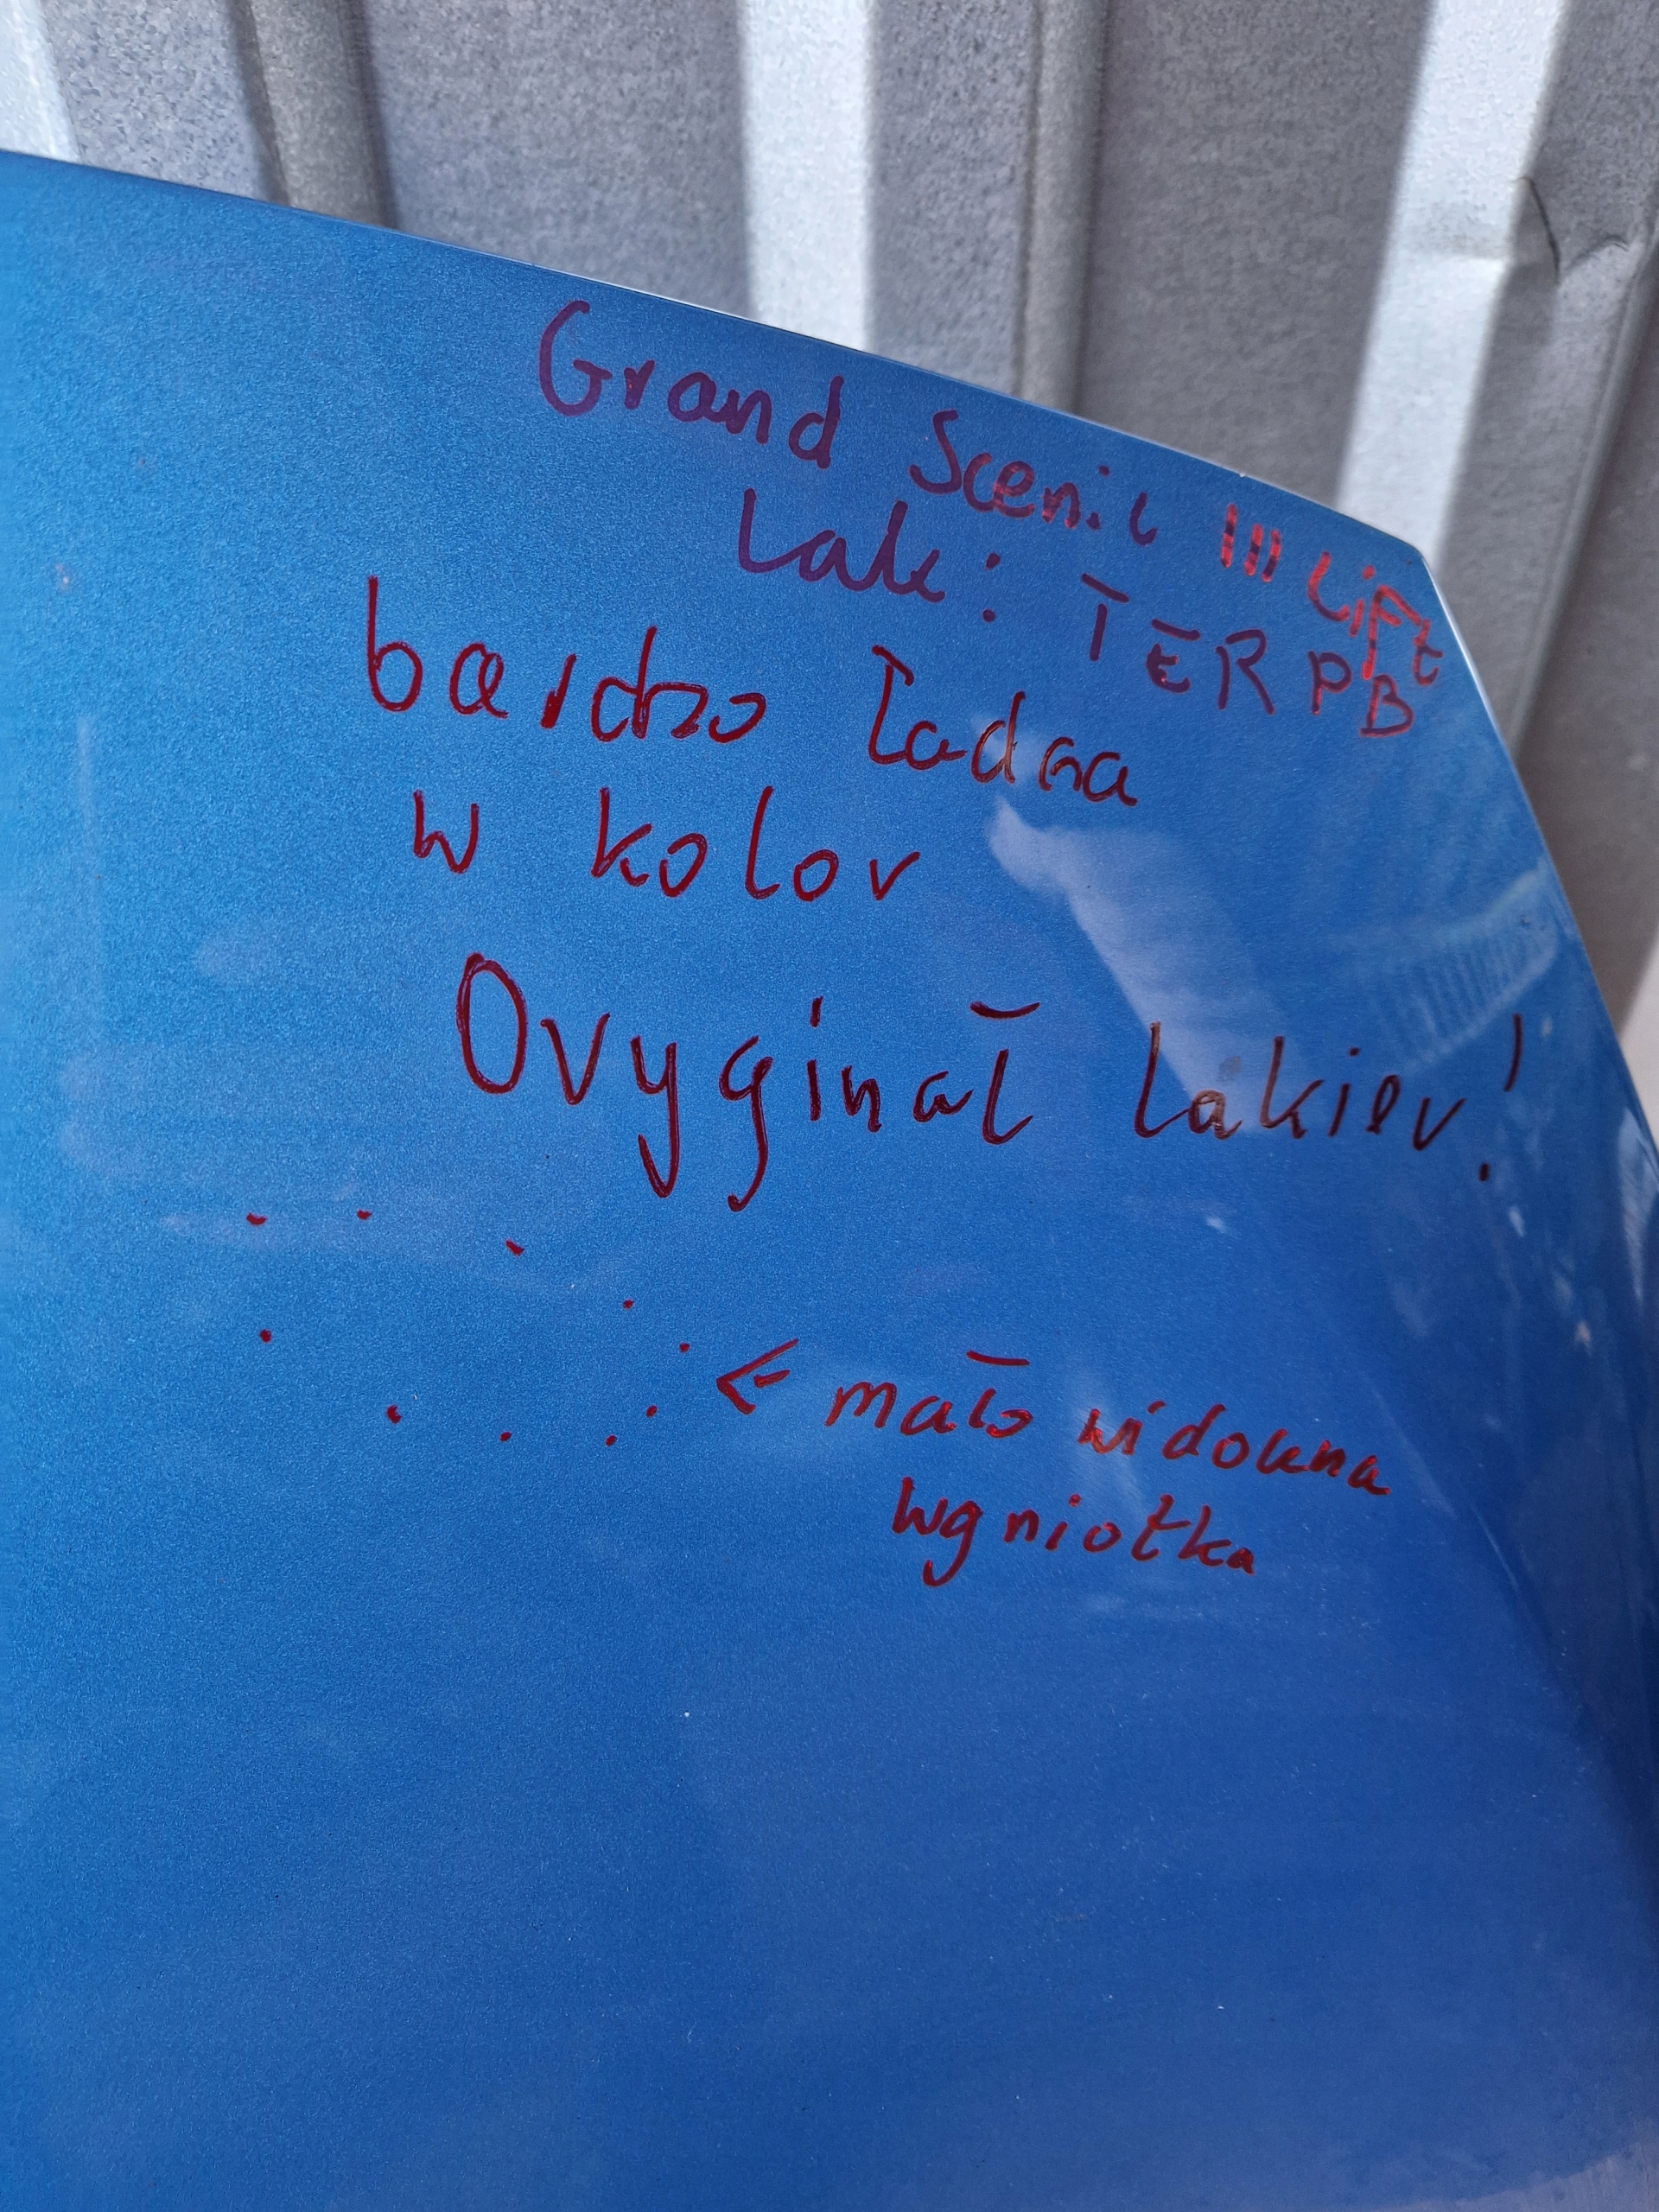 Grand Scenic III Lift
Lak: TERPB
bardzo ładna
w kolor
Oryginał lakier!
← mało widowna
wgniotka